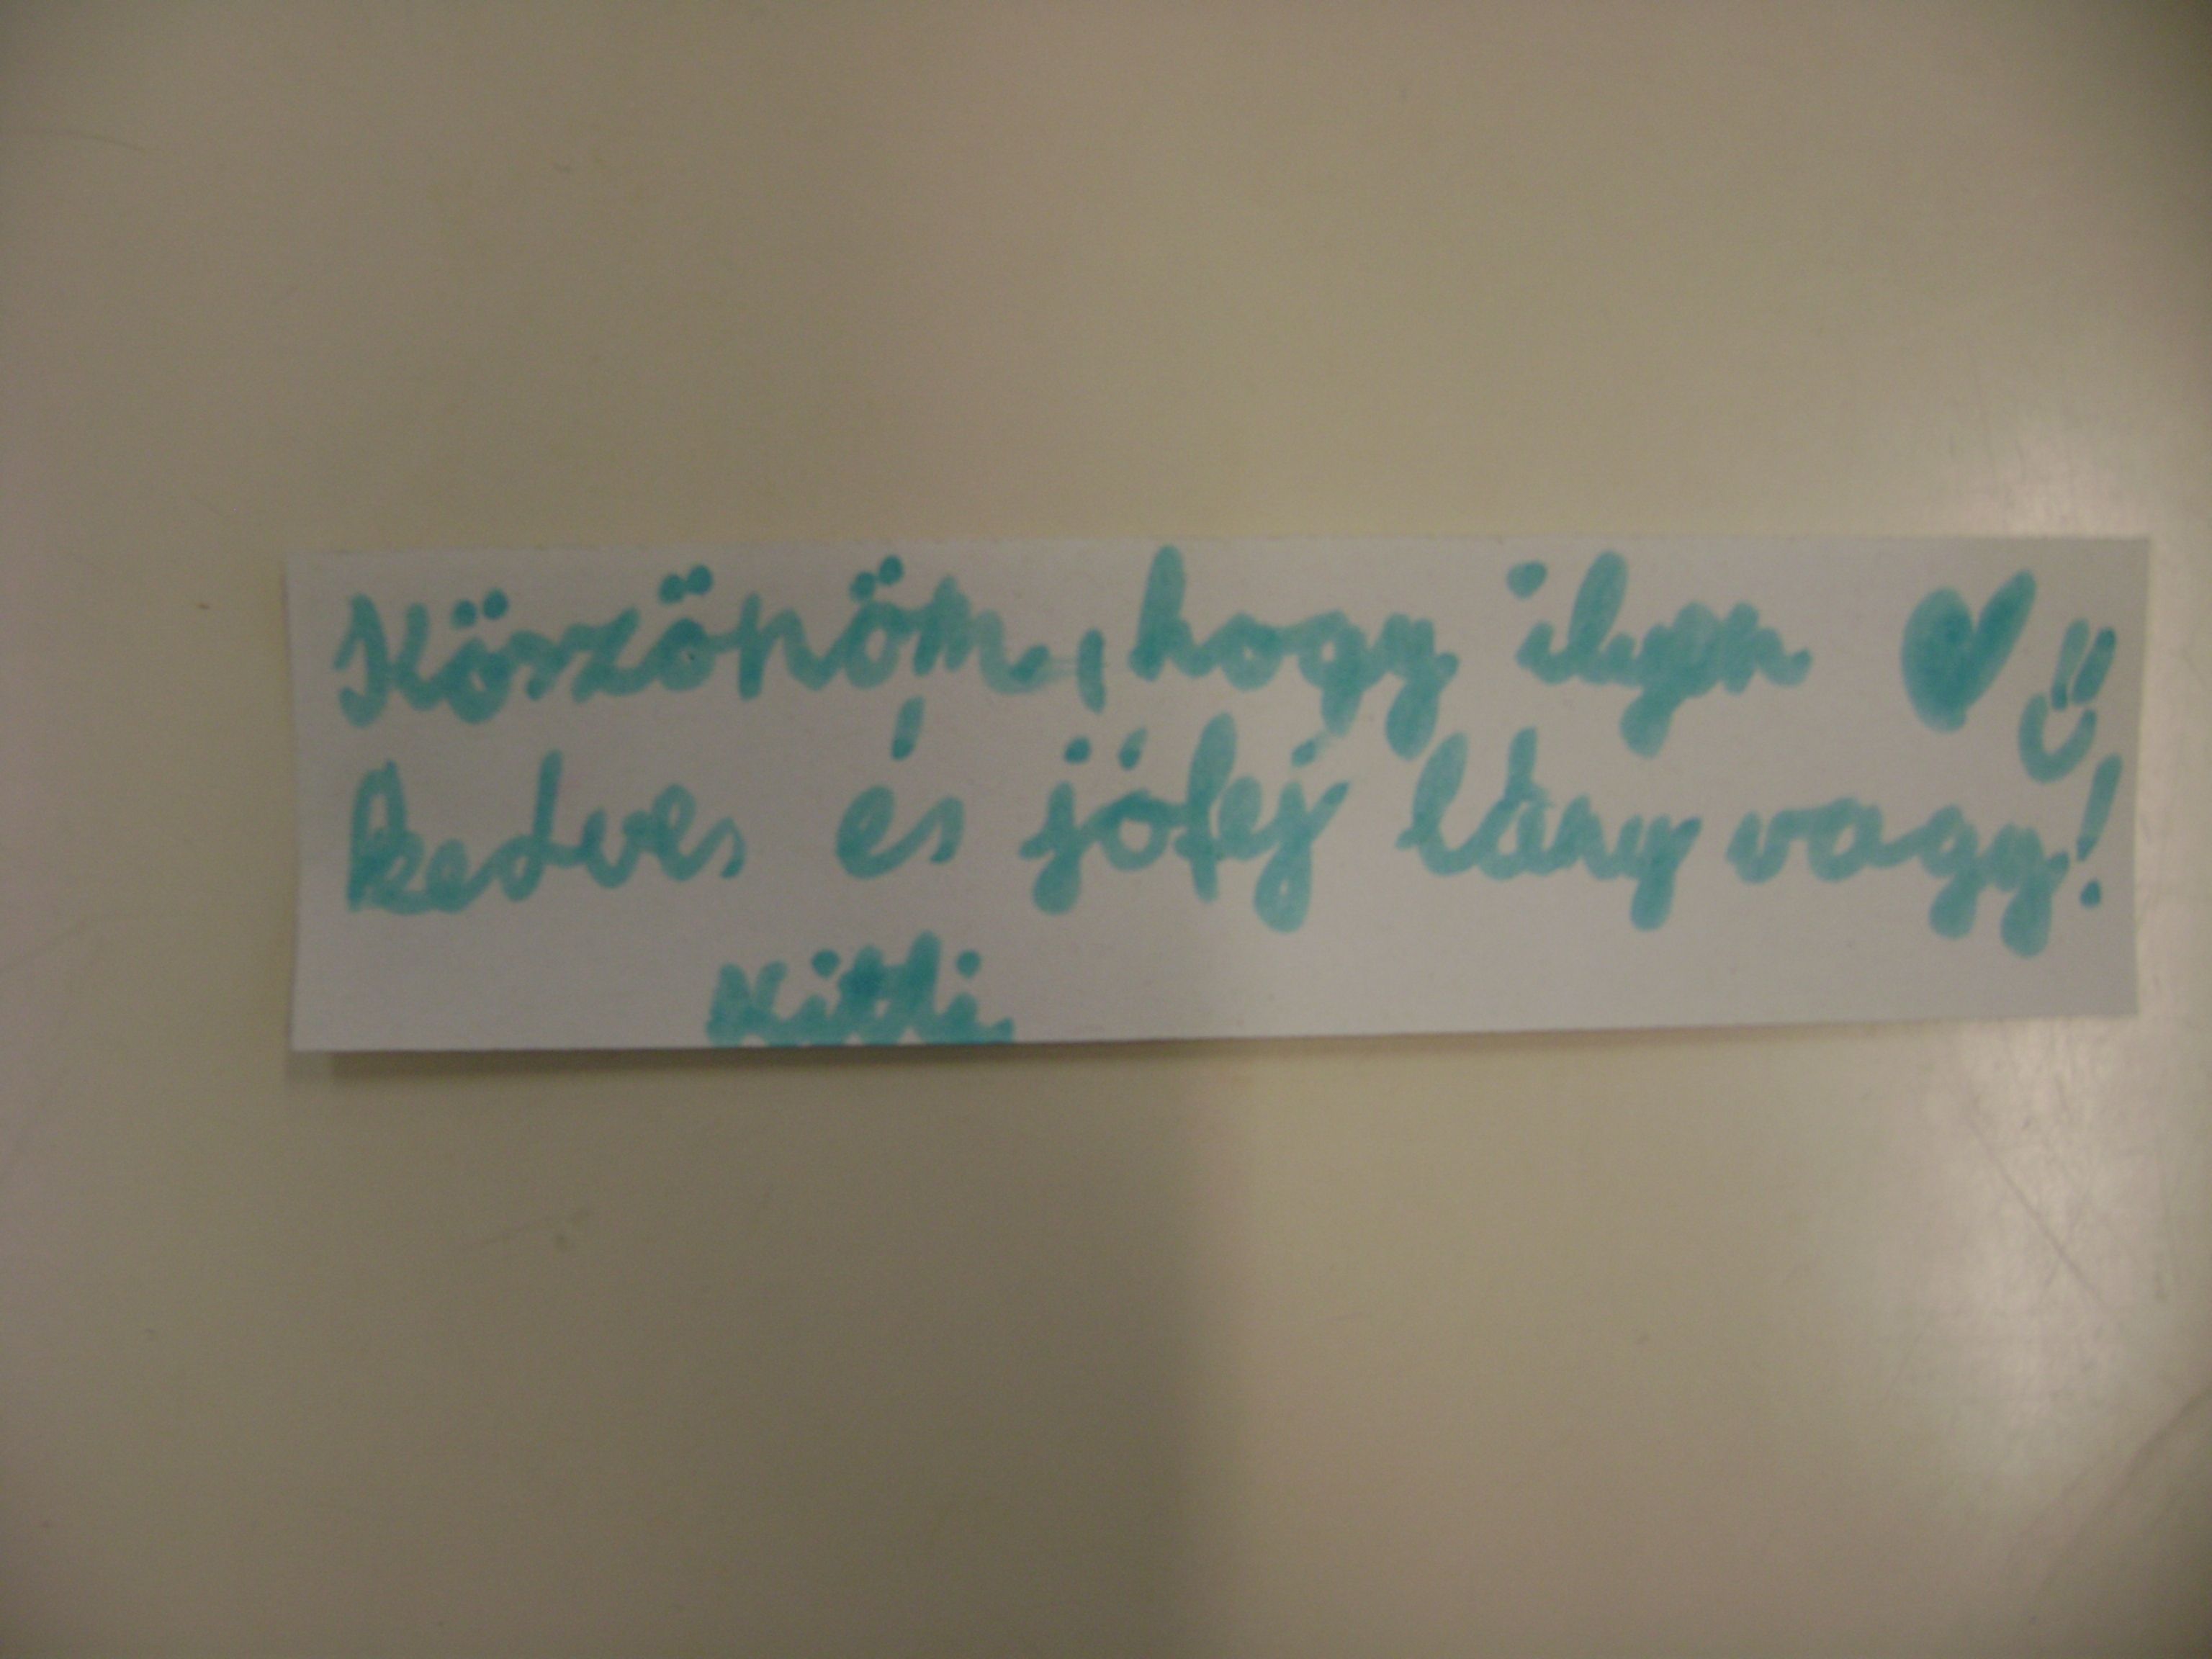 Köszönöm, hogy ilyen ♥ :)
kedves és jófej lány vagy!
Kitti